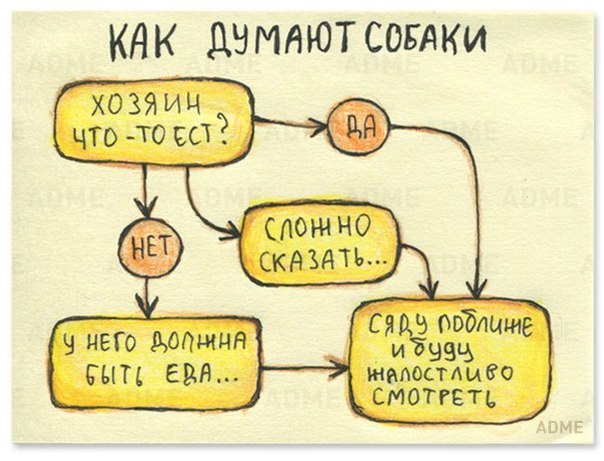 КАК ДУМАЮТ СОБАКИ
ХОЗЯИН
ЧТО-ТО ЕСТ?
ДА
НЕТ
СЛОЖНО
СКАЗАТЬ...
У НЕГО ДОЛЖНА
БЫТЬ ЕДА...
СЯДУ ПОБЛИЖЕ
И БУДУ
ЖАЛОСТЛИВО
СМОТРЕТЬ
ADME